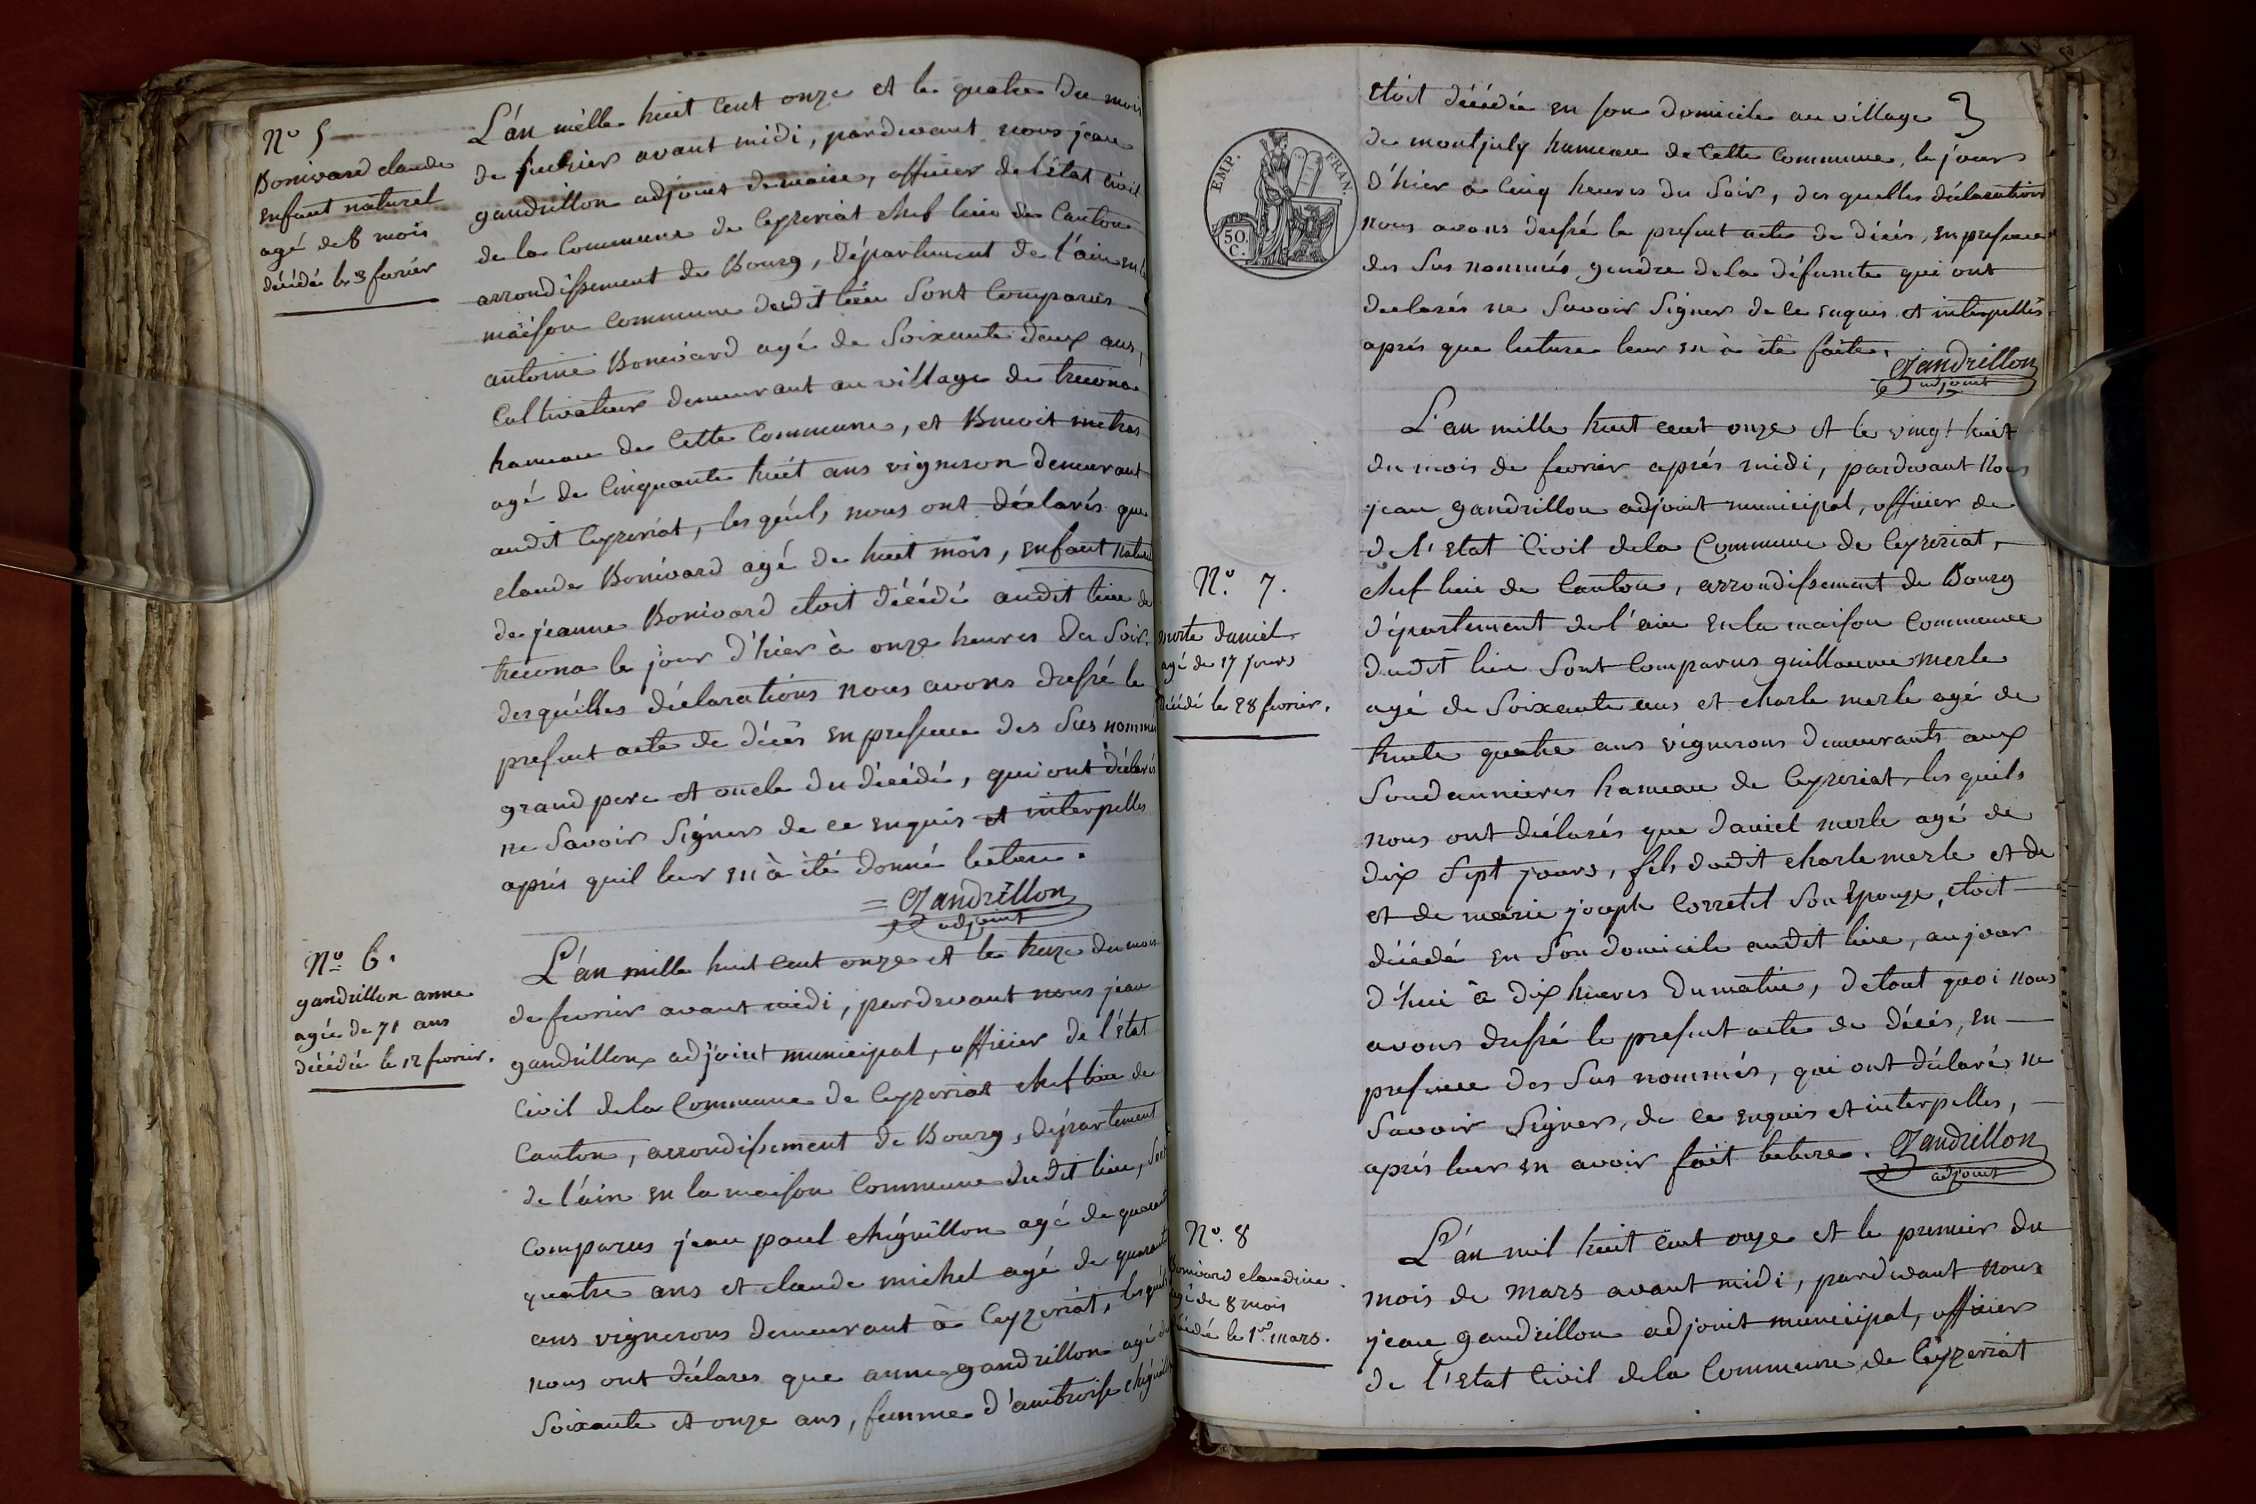 Nº 5
Bonivard claude
enfant naturel
agé de 8 mois
décédé le 3 favrier
L'an mille huit cent onze et le quatre du mois
de fuvrier avant midi, pardevant nous jean
gandrillon adjoint de maire, officier de l'état civil
de la Commune de Ceyzeriat chef lieu de Canton
arrondissement de Bourg, département de l'ain en la
maison commune dudit lieu sont Comparus
antoine Bonivard agé de soixante deux ans,
Cultivateur demeurant au village de treconas
hameau de Cette Commune, et Benoit
agé de Cinquante huit ans vigneron demeurant
audit Ceyzeriat, les quéls nous ont déclarés que
claude Bonivard agé de huit mois, enfant naturel
de jeanne Bonivard étoit décédé audit lieu de
trecona le jour d'hier à onze heures du soir.
desquélles déclarations nous avons dressé le
present acte de décès en presence des sus nommés
grand pere et oncle du décédé, qui ont déclarés
ne savoir signer de ce enquis et interpellés
aprés quil leur en à été donné lecture.
= Gandrillon
adjoint
Nº 6.
gandrillon anne
agée de 71 ans
décédée le 12 fevrier.
L'an mille huit cent onze et le treize du mois
de fevrier avant midi, pardevant nous jean
gandrillon adjoint municipal, officier de l'état
Civil de la Commune de Ceyzeriat chef lieu de
Canton, arrondissement de Bourg, département
de l'ain en la maison Commune dudit lieu, sont
Comparus jean paul chiguillon agé de quarante
quatre ans et claude michel agé de quarante
ans vignerons demeurant à Ceyzeriat, les quéls
nous ont déclares que anne gandrillon agée de
soixante et onze ans, femme d'ambroise chiguillon
EMP. FRAN.
50. C.
étoit décédée en son domicile au village
de montjuly hameau de Cette Commune, le jour
d'hier a Cinq heures du soir, des quelles déclarations
nous avons dressé le present acte de décés, en presence
des sus nommés, gendre de la défunte qui ont
declarés ne savoir signer de ce enquis et interpellés
aprés que lecture leur en à été faite.
Gandrillon
adjoint
Nº. 7.
merle daniel
agé de 17 jours
décédé le 28 fevrier.
L'an mille huit cent onze et le vingt huit
du mois de fevrier aprés midi, pardevant nous
jean gandrillon adjoint municipal, officier de
de l'etat Civil de la Commune de Ceyzeriat,
chef lieu de Canton, arrondissement de Bourg
département de l'ain en la maison Commune
dudit lieu sont Comparus guillaume merle
agé de soixante ans et charle merle agé de
trente quatre ans vignerons demeurants aux
Soudannieres hameau de Ceyzeriat, les quils
nous ont déclarés que daniel merle agé de
dix sept jours, fils dudit charle merle et de
et de marie joseph Corretel son Epouze, étoit
décédé en son domicile audit lieu, aujour
d'hui à dix heures du matin, de tout quoi nous
avons dressé le present acte de décés, en
presence des sus nommés, qui ont déclarés ne
savoir signer, de ce enquis et interpellés,
aprés leur en avoir fait lecture. Gandrillon
adjoint
Nº. 8
Bonivard claudine
agé de 8 mois
décédé le 1er mars.
L'an mil huit cent onze et le premier du
mois de mars avant midi, pardevant nous
jean gandrillon adjoint municipal, officier
de l'etat Civil de la Commune de Ceyzeriat